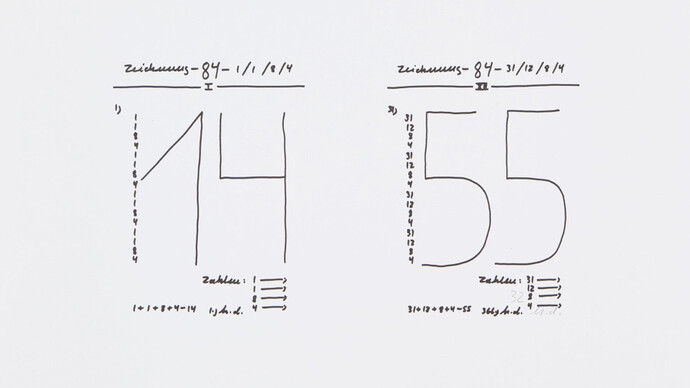 Zeichnung – 84 – 1/1/8/4
I
1)
1
1
8
4
1
1
8
4
1
1
8
4
1
1
8
4
14
Zahlen: 1 →
1 →
8 →
4 →
1+1+8+4–14
Zeichnung – 84 – 31/12/8/4
XII
31)
31
12
8
4
31
12
8
4
31
12
8
4
31
12
8
4
55
Zahlen: 31 →
12 →
8 →
4 →
31+12+8+4–55